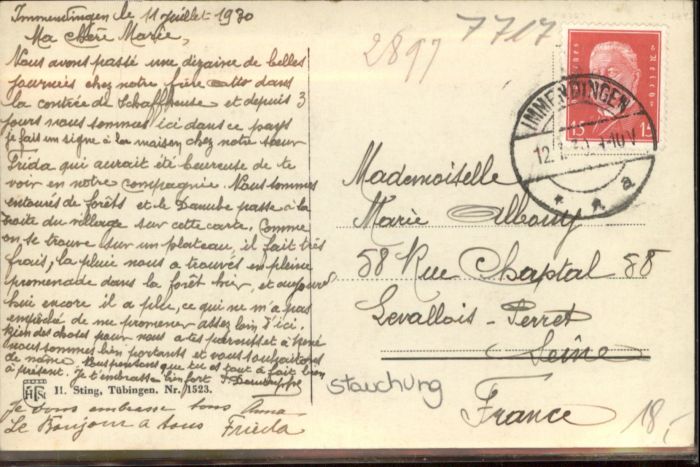 Immendingen le 11 Juillet 1930
Ma chère Marie,
Nous avons passé une dizaine de belles
journées chez notre frère Otto dans
la contrée de Schaffhouse et depuis 3
jours nous sommes ici dans ce pays
je fais un signe à la maison chez notre sœur
Frida qui aurait été heureuse de te
voir en notre compagnie. Nous sommes
entourés de forêts et le Danube passe à la
droite du village sur cette carte. Comme
on se trouve sur un plateau, il fait très
frais, la pluie nous a trouvés en pleine
promenade dans la forêt hier, et aujourd'
hui encore il a plu, ce qui ne m'a pas
empêché de me promener assez loin d'ici.
bien des choses pour nous a tes parents et à René
nous sommes bien portants et vous souhaitons
de même. Nous pensons que tu es tout à fait bien
à présent. Je t'embrasse bien fort
H. Sting, Tübingen. Nr. 1523.
Je vous embrasse tous Anna
Le Bonjour à tous Frieda
2897
7717
15 15
IMMENDINGEN
Mademoiselle
Marie Albouy
58 Rue Chaptal 58
Levallois-Perret
Seine
France
Stauchung
18,-